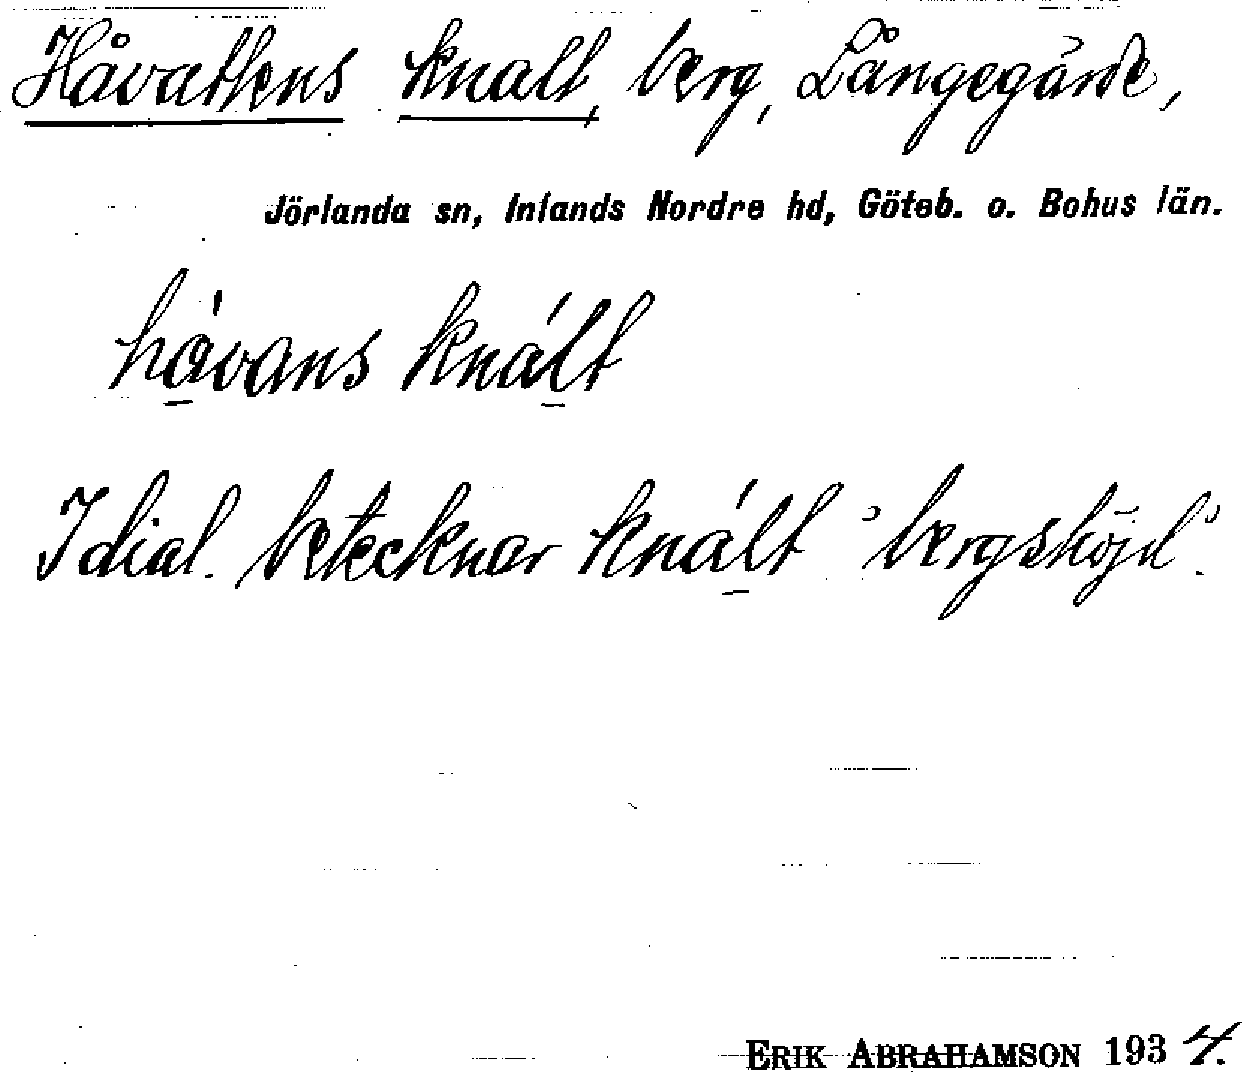 Håvattens knalt, berg, Långegärde,
Jörlanda sn, Inlands Nordre hd, Göteb. o. Bohus län.
håvans knált
I dial. betecknar knált "bergshöjd".
ERIK ABRAHAMSON 1934.